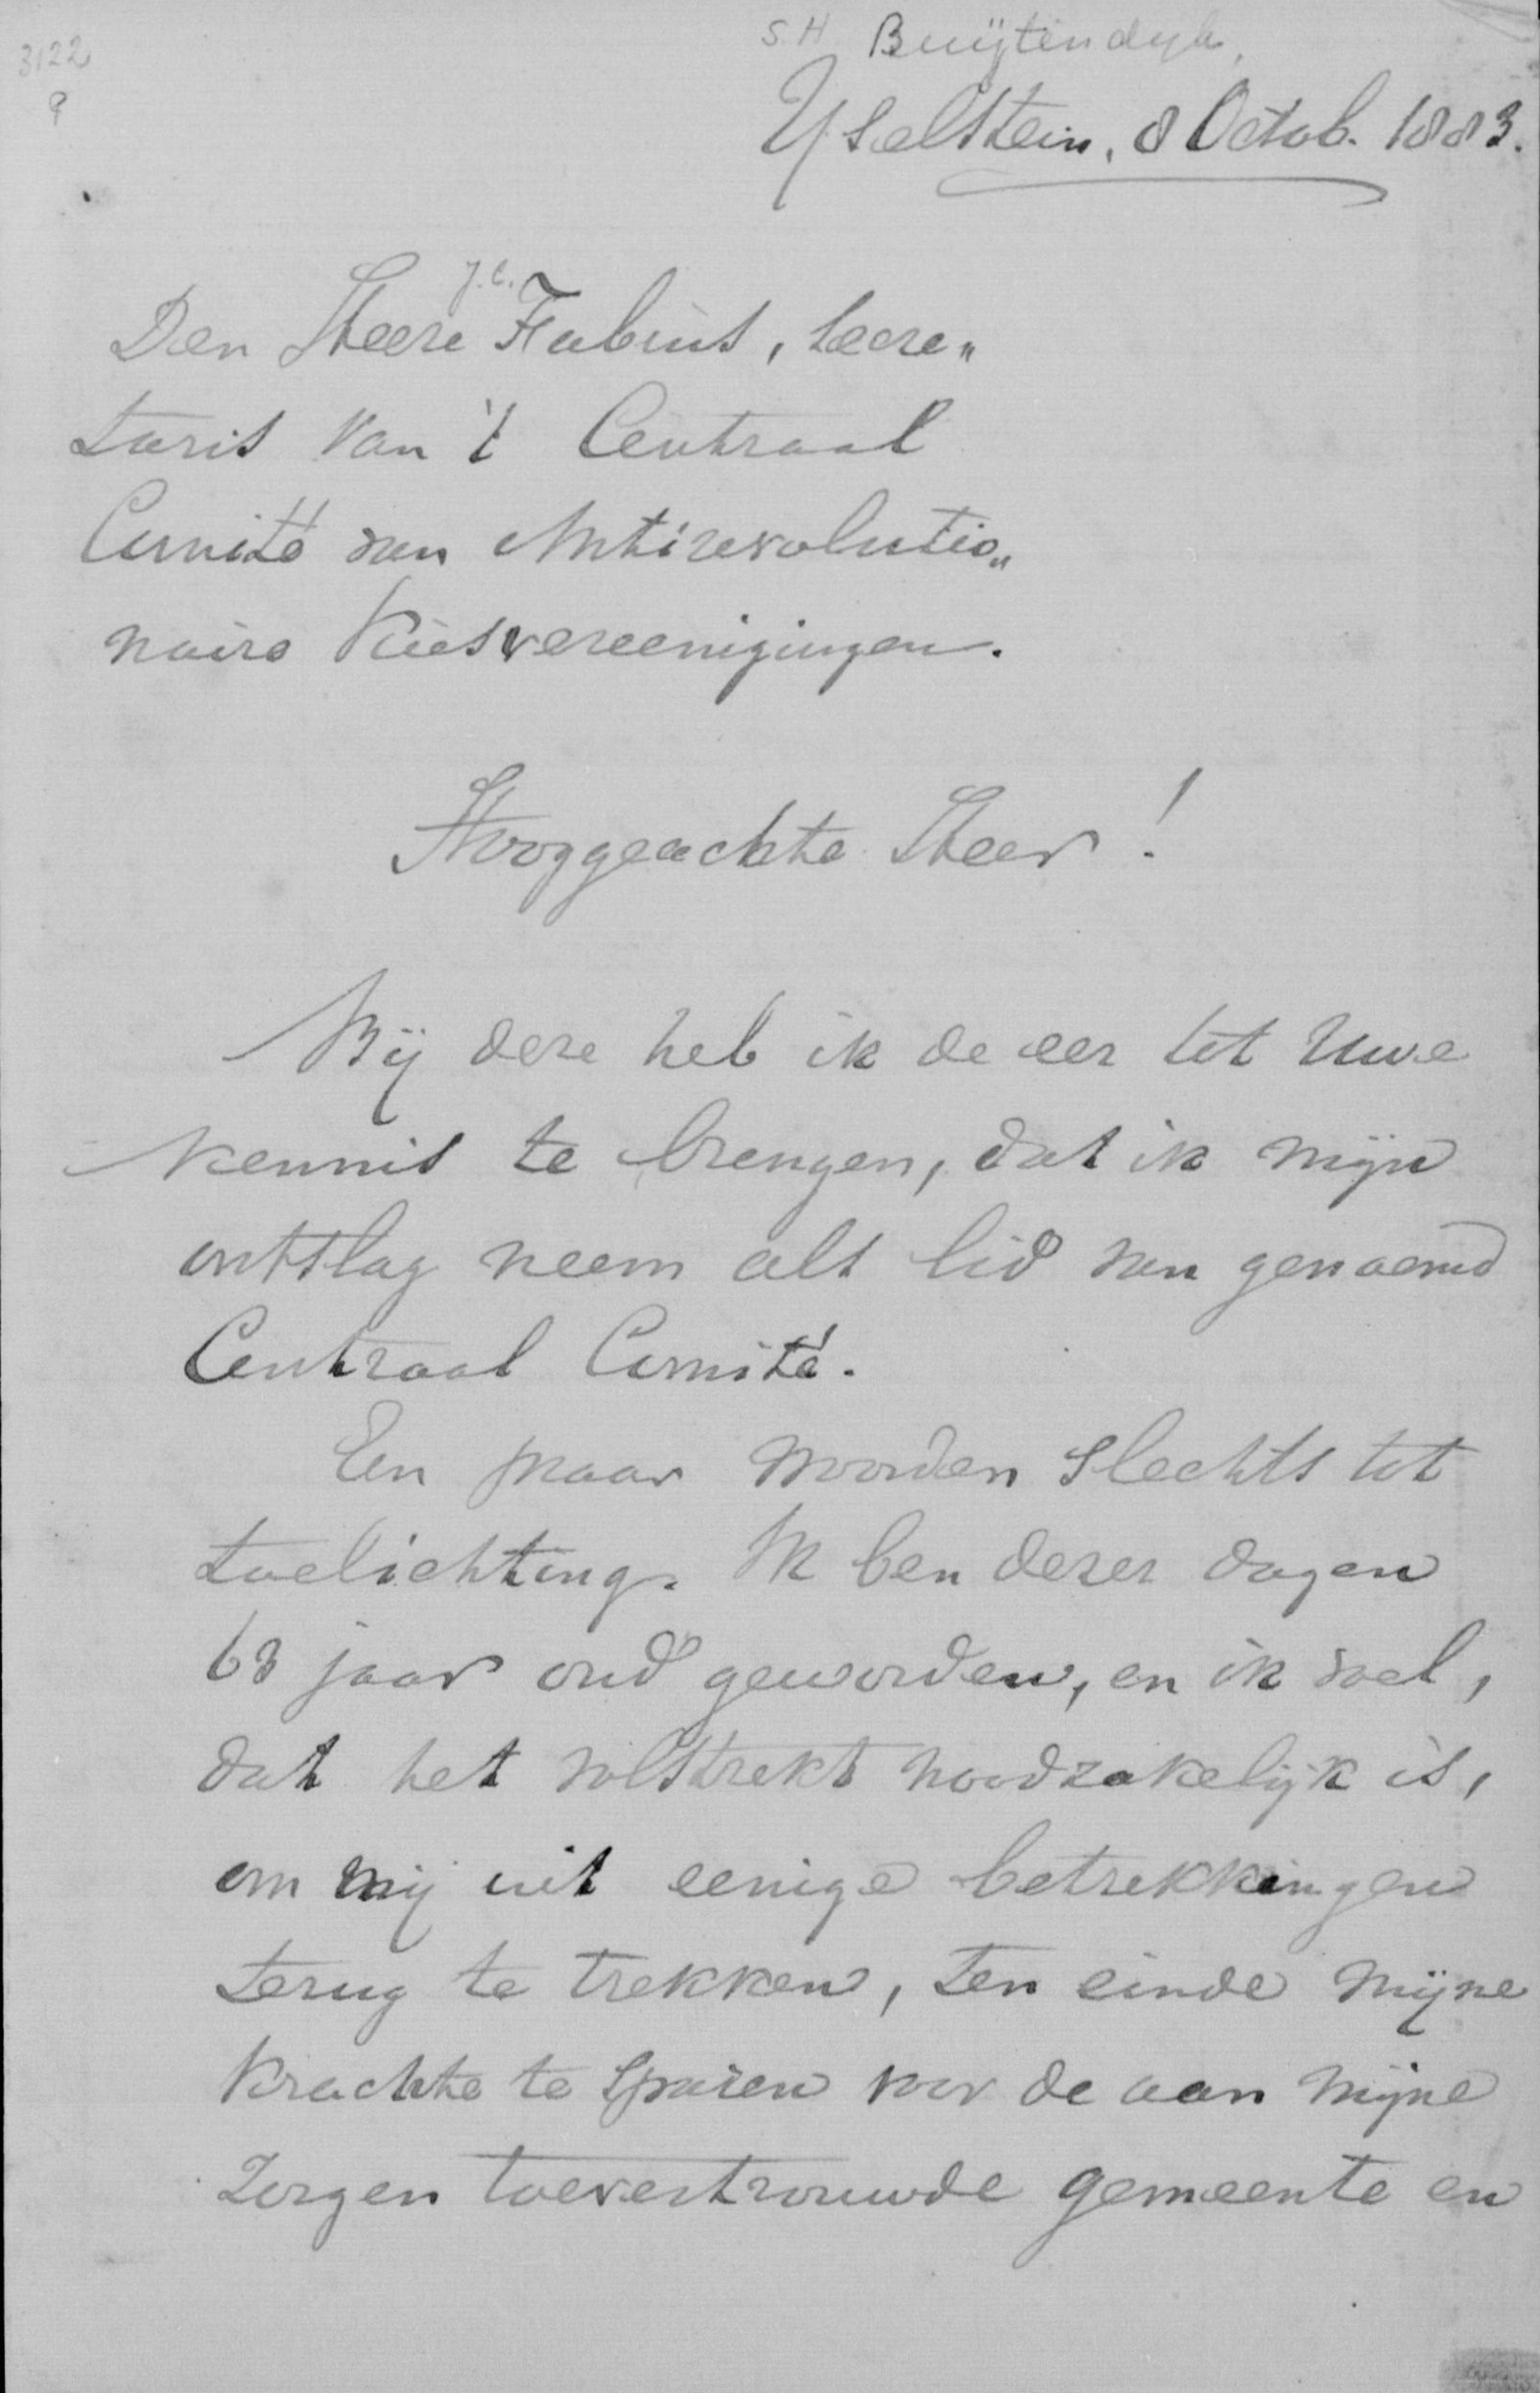 3122
S.H Buijtendijk,
IJselstein, 8 Octob. 1883.
J.C.
Den Heere Fabius, secre„
taris van 't Centraal
Comité van Antirevolutio„
naire Kiesvereenigingen.
Hooggeachte Heer!
Bij deze heb ik de eer tot Uwe
kennis te brengen, dat ik mijn
ontslag neem als lid van genoemd
Centraal Comité.
Een paar woorden slechts tot
toelichting. Ik ben dezer dagen
63 jaar oud geworden, en ik voel,
dat het volstrekt noodzakelijk is,
om mij uit eenige betrekkingen
terug te trekken, ten einde mijne
krachte te sparen voor de aan mijne
zorgen toevertrouwde gemeente en